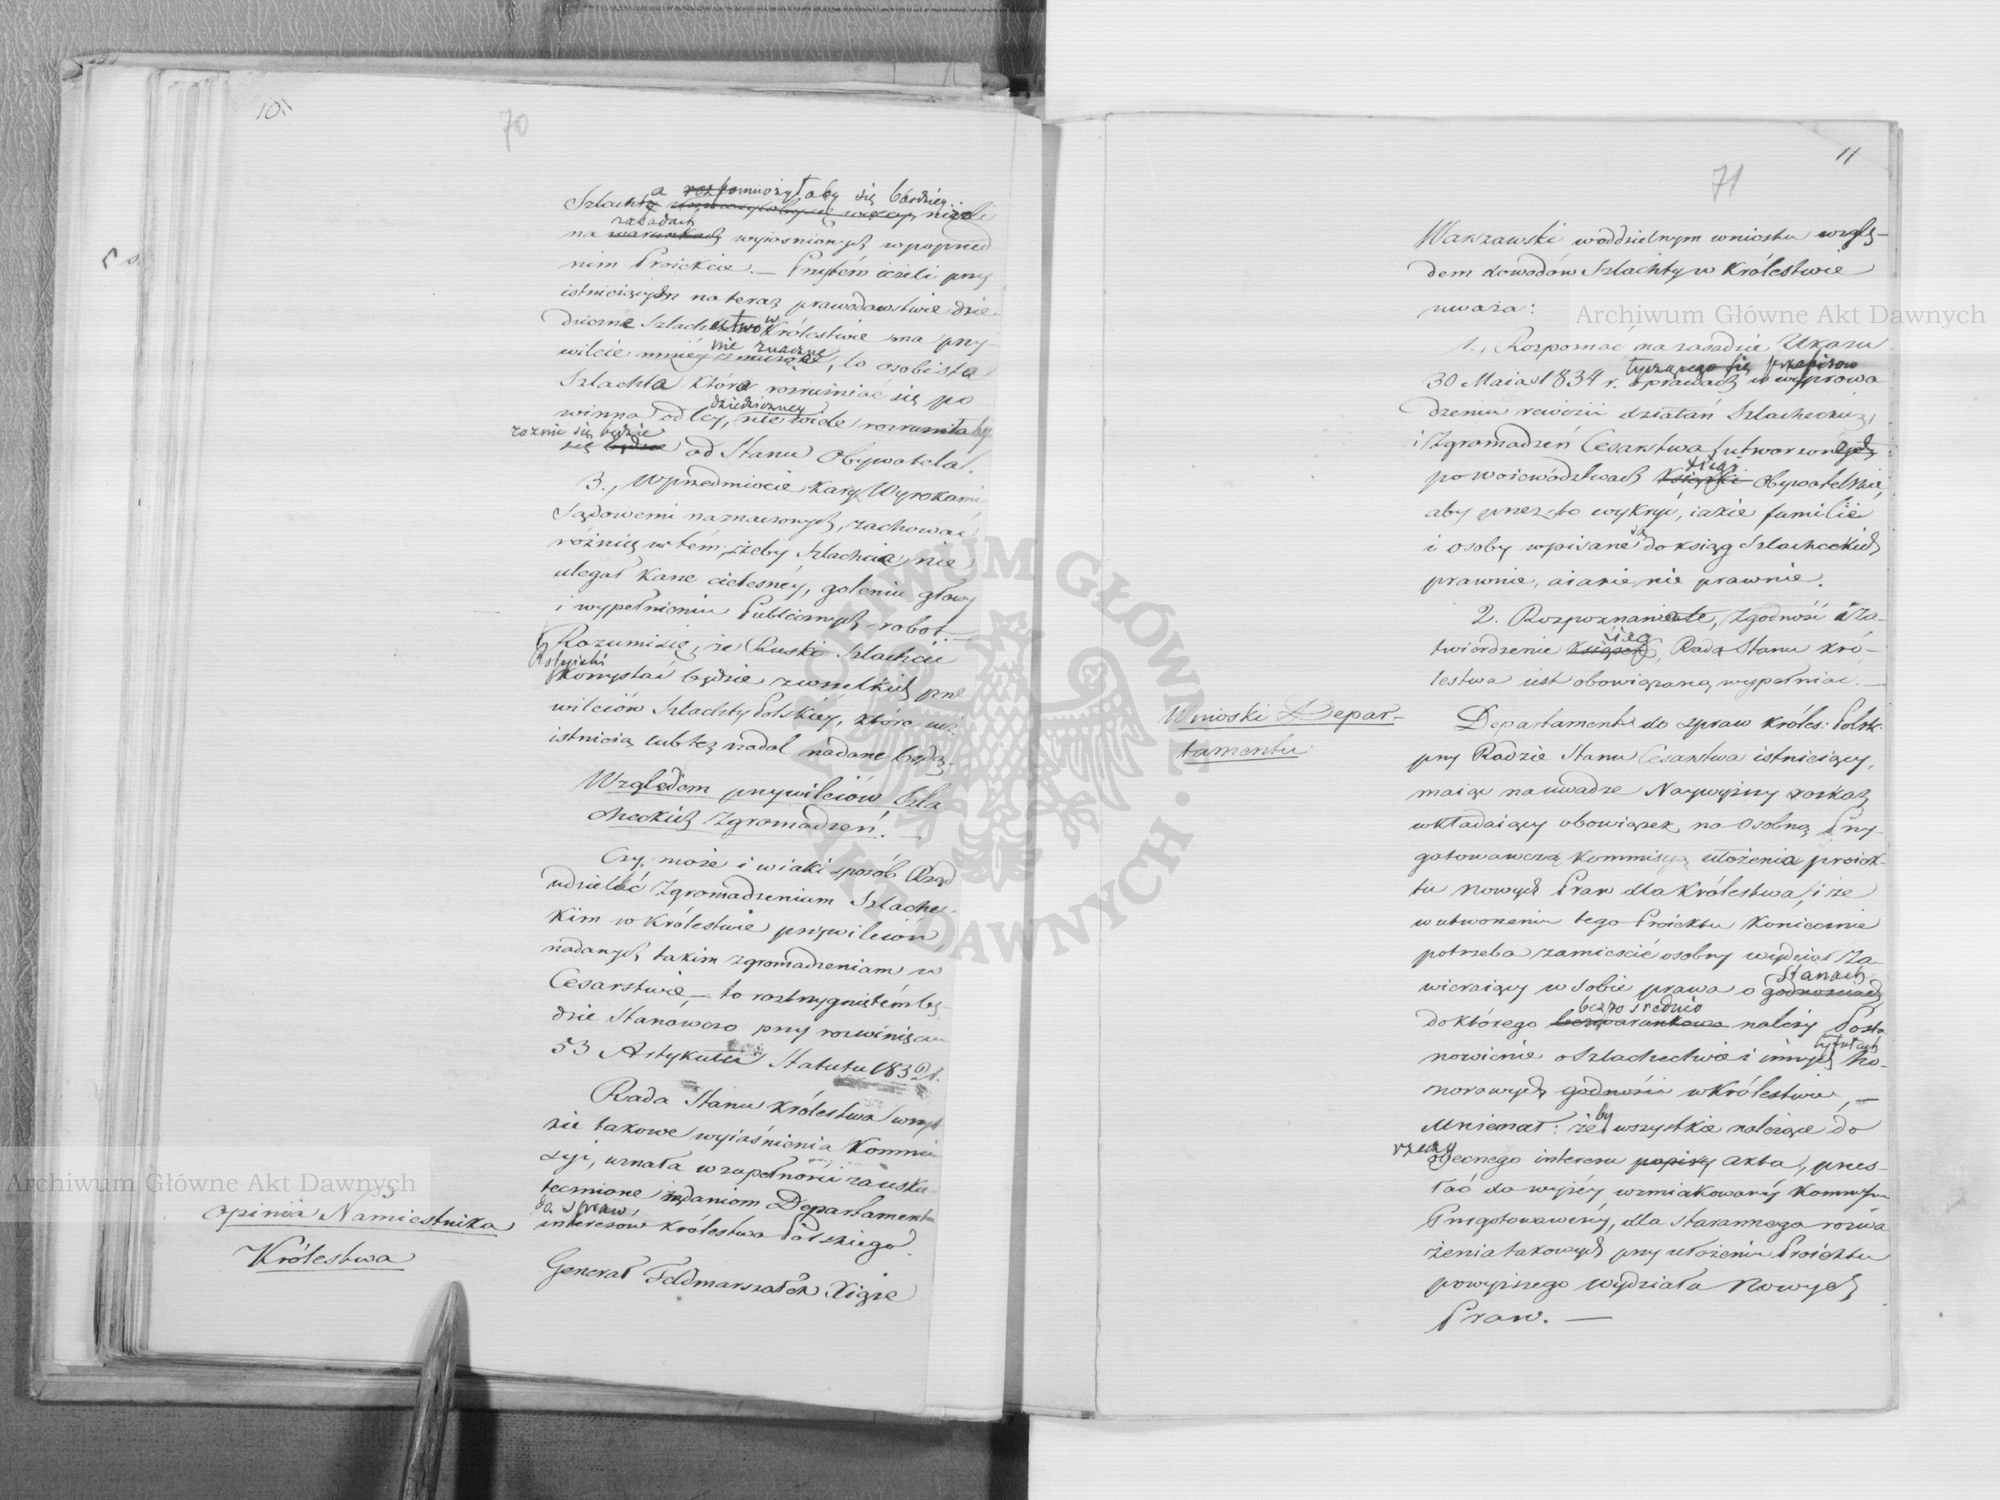 10.
70
Szlachta rozpomnożyłaby się bardziej niżeli
zasadach
na warunkach wyjaśnionych w poprzed
nim Proiekcie. — Przytém ieżeli przy
istnieiącym na teraz prawodawstwie dzie
dziczne Szlachectwo w Królestwie ma przy
wileie mniéj nie znaczne, to osobista
Szlachta która rozumieć się po
winna od tey dziedziczney, nie wiele
różnic się będzie
się będzie od Stanu Obywatelsk.
3., W przedmiocie kary Wyrokami
Sądowemi naznaczonych, zachować
różnicę w tém, żeby Szlachcic nie
ulegał karze cielesnéy, goleniu głowy
i wypełnieniu Publicznych robot. —
Rozumie się, że Ruski Szlachcic
Rossyiski
korzystać będzie z wszelkich prze
wileiów Szlachty Polskiéy, które już
istnieią lub też nadal nadane będą.
Względem przywileiów Szla
checkich Zgromadzeń. —
Czy może i w iaki sposób Rząd
udzielać Zgromadzeniom Szlachec
kim w Królestwie przywileiów,
nadanych takim zgromadzeniom w
Cesarstwie, — to rostrzygniętém bę
dzie Stanowczo przy rozwinięciu
53 Artykułu Statutu 1832 r.
Rada Stanu Królestwa
zie takowe wyiaśnienia Kommis
syi, uznała w zupełności zausku
tecznione żądaniom Departamentu
do spraw
interesów Królestwa Polskiego.
Opinia Namiestnika
Królestwa
Generał Feldmarszałek Xiąże
11
71
Warszawski w oddzielnym wniosku wzglę-
dem dowodów Szlachty w Królestwie
uważa:
1., Rozpoznać na zasadzie Ukazu
tyczącego się przepisow
30 Maia 1834 r. o prawach w wyprowa
dzeniu rewizii działań Szlacheckich
i Zgromadzeń Cesarstwa, utworzone
xięgi
po woiewództwach książki Obywatelskie,
aby przez to wykryć, iakie familie
są
i osoby wpisane do ksiąg Szlacheckich
prawnie, a iakie nie prawnie.
2. Rozpoznanie te, zgodność i Za-
xiąg
twierdzenie książek, Rada Stanu Kró-
lestwa iest obowiązaną wypełniać. —
Wnioski Depar-
tamentu.
Departament do spraw Króles: Polsk:
przy Radzie Stanu Cesarstwa istnieiący,
maiąc na uwadze Naywyższy rozkaz
wkładaiący obowiązek na Osobną Przy-
gotowawczą Kommissyą ułożenia proiek-
tu nowych Praw dla Królestwa, i że
w utworzeniu tego Proiektu koniecznie
potrzeba zamieścić osobny wydział Za-
stanach
wieraiący w sobie prawa o godnościach,
bezpośrednio
do którego bezwarunkowo należy Posta
tytułach
nowienie o Szlachectwie i innych Ho-
norowych godności w Królestwie, —
by
Mniemał: że wszystkie należące do
rzeczy
obecnego interesu papiery akta, przes-
łać do wyżéy wzmiakowanéy Kommissyi
Przygotowawczéy, dla starannego rozwa
żenia takowych przy ułożeniu Proiektu
powyższego Wydziału Nowych
Praw. —
Archiwum Główne Akt Dawnych
Archiwum Główne Akt Dawnych
ARCHIWUM GŁÓWNE AKT DAWNYCH